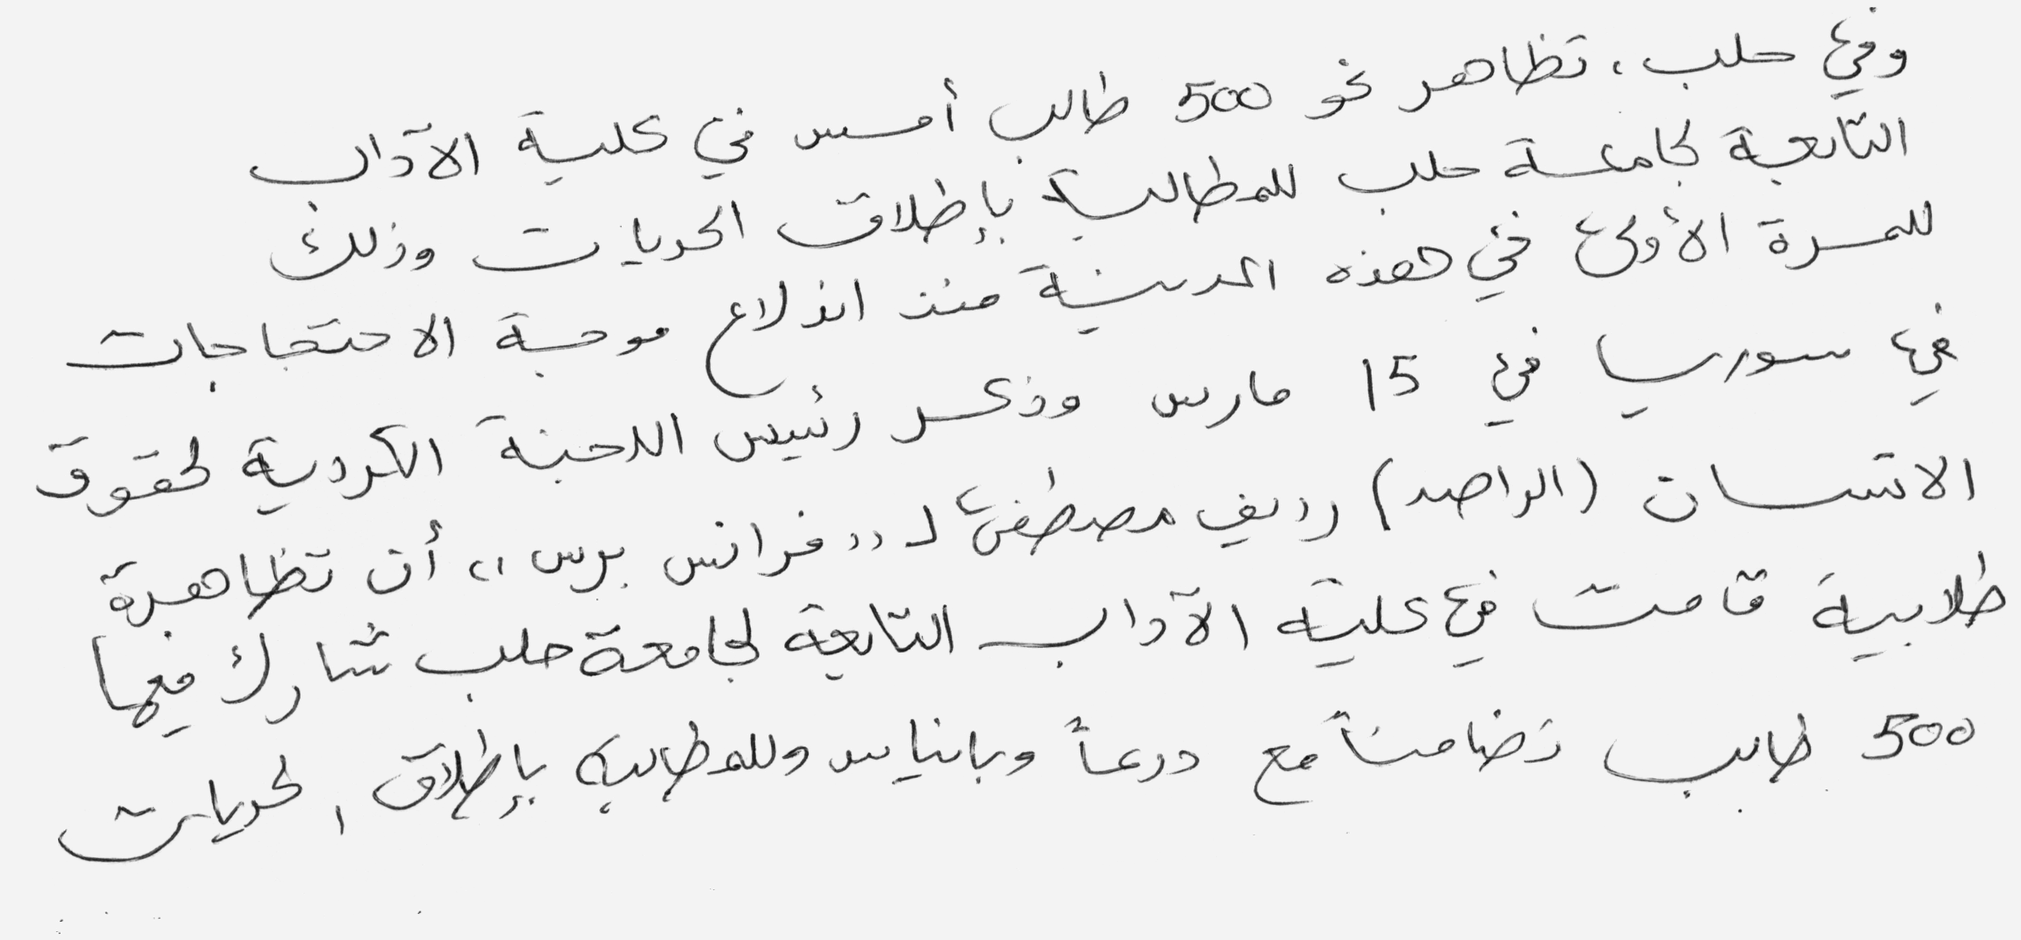 وفي حلب، تظاهر نحو 500 طالب أمس في كلية الآداب
التابعة لجامعة حلب للمطالبة بإطلاق الحريات وذلك
للمرة الأولى في هذه المدينة منذ اندلاع موجة الاحتجاجات
في سوريا في 15 مارس وذكر رئيس اللجنة الكردية لحقوق
الانسان (الراصد) رديف مصطفى لـ «فرانس برس»، أن تظاهرة
طلابية قامت في كلية الآداب التابعة لجامعة حلب شارك فيها
500 طالب تضامناً مع درعاً وبانياس وللمطالبه بإطلاق الحريات